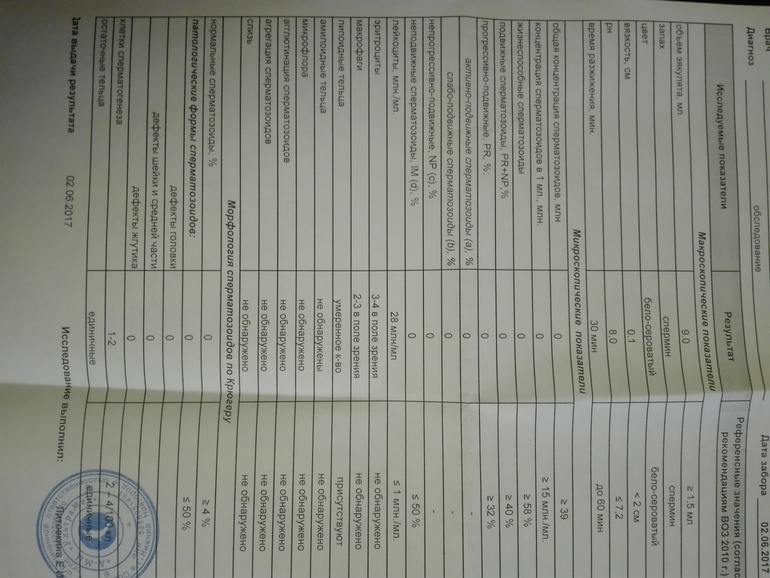 Врач
Диагноз обследование Дата забора 02.06.2017
Исследуемые показатели Результат Референсные значения (соглас рекомендациям ВОЗ 2010 г.)
Макроскопические показатели
объем эякулята, мл. 9.0 ≥ 1,5 мл
запах спермин спермин
цвет бело-сероватый бело-сероватый
вязкость, см 0,1 < 2 см
рН 8,0 ≤ 7,2
время разжижения, мин. 30 мин до 60 мин
Микроскопические показатели
общая концентрация сперматозоидов, млн 0 ≥ 39
концентрация сперматозоидов в 1 мл., млн. 0 ≥ 15 млн./мл.
жизнеспособные сперматозоиды 0 ≥ 58 %
подвижные сперматозоиды, PR+NP,% 0 ≥ 40 %
прогрессивно-подвижные, PR, %: 0 ≥ 32 %
активно-подвижные сперматозоиды (a), % 0 -
слабо-подвижные сперматозоиды (b), % 0 -
непрогрессивно-подвижные, NP (c), % 0 -
неподвижные сперматозоиды, IM (d), % 0 ≤ 50 %
лейкоциты, млн./мл. 28 млн/мл ≤ 1 млн./мл.
эритроциты 3-4 в поле зрения не обнаружено
макрофаги 2-3 в поле зрения не обнаружено
липоидные тельца умеренное к-во присутствуют
амилоидные тельца не обнаружены не обнаружено
микрофлора не обнаружено не обнаружено
агглютинация сперматозоидов не обнаружено не обнаружено
агрегация сперматозоидов не обнаружено не обнаружено
слизь не обнаружено не обнаружено
Морфология сперматозоидов по Крюгеру
нормальные сперматозоиды, % 0 ≥ 4 %
патологические формы сперматозоидов: 0 ≤ 50 %
дефекты головки 0
дефекты шейки и средней части 0
дефекты жгутика 0
клетки сперматогенеза 1-2 2 – 4/100
остаточные тельца единичные единичные
Дата выдачи результата 02.06.2017 Исследование выполнил: